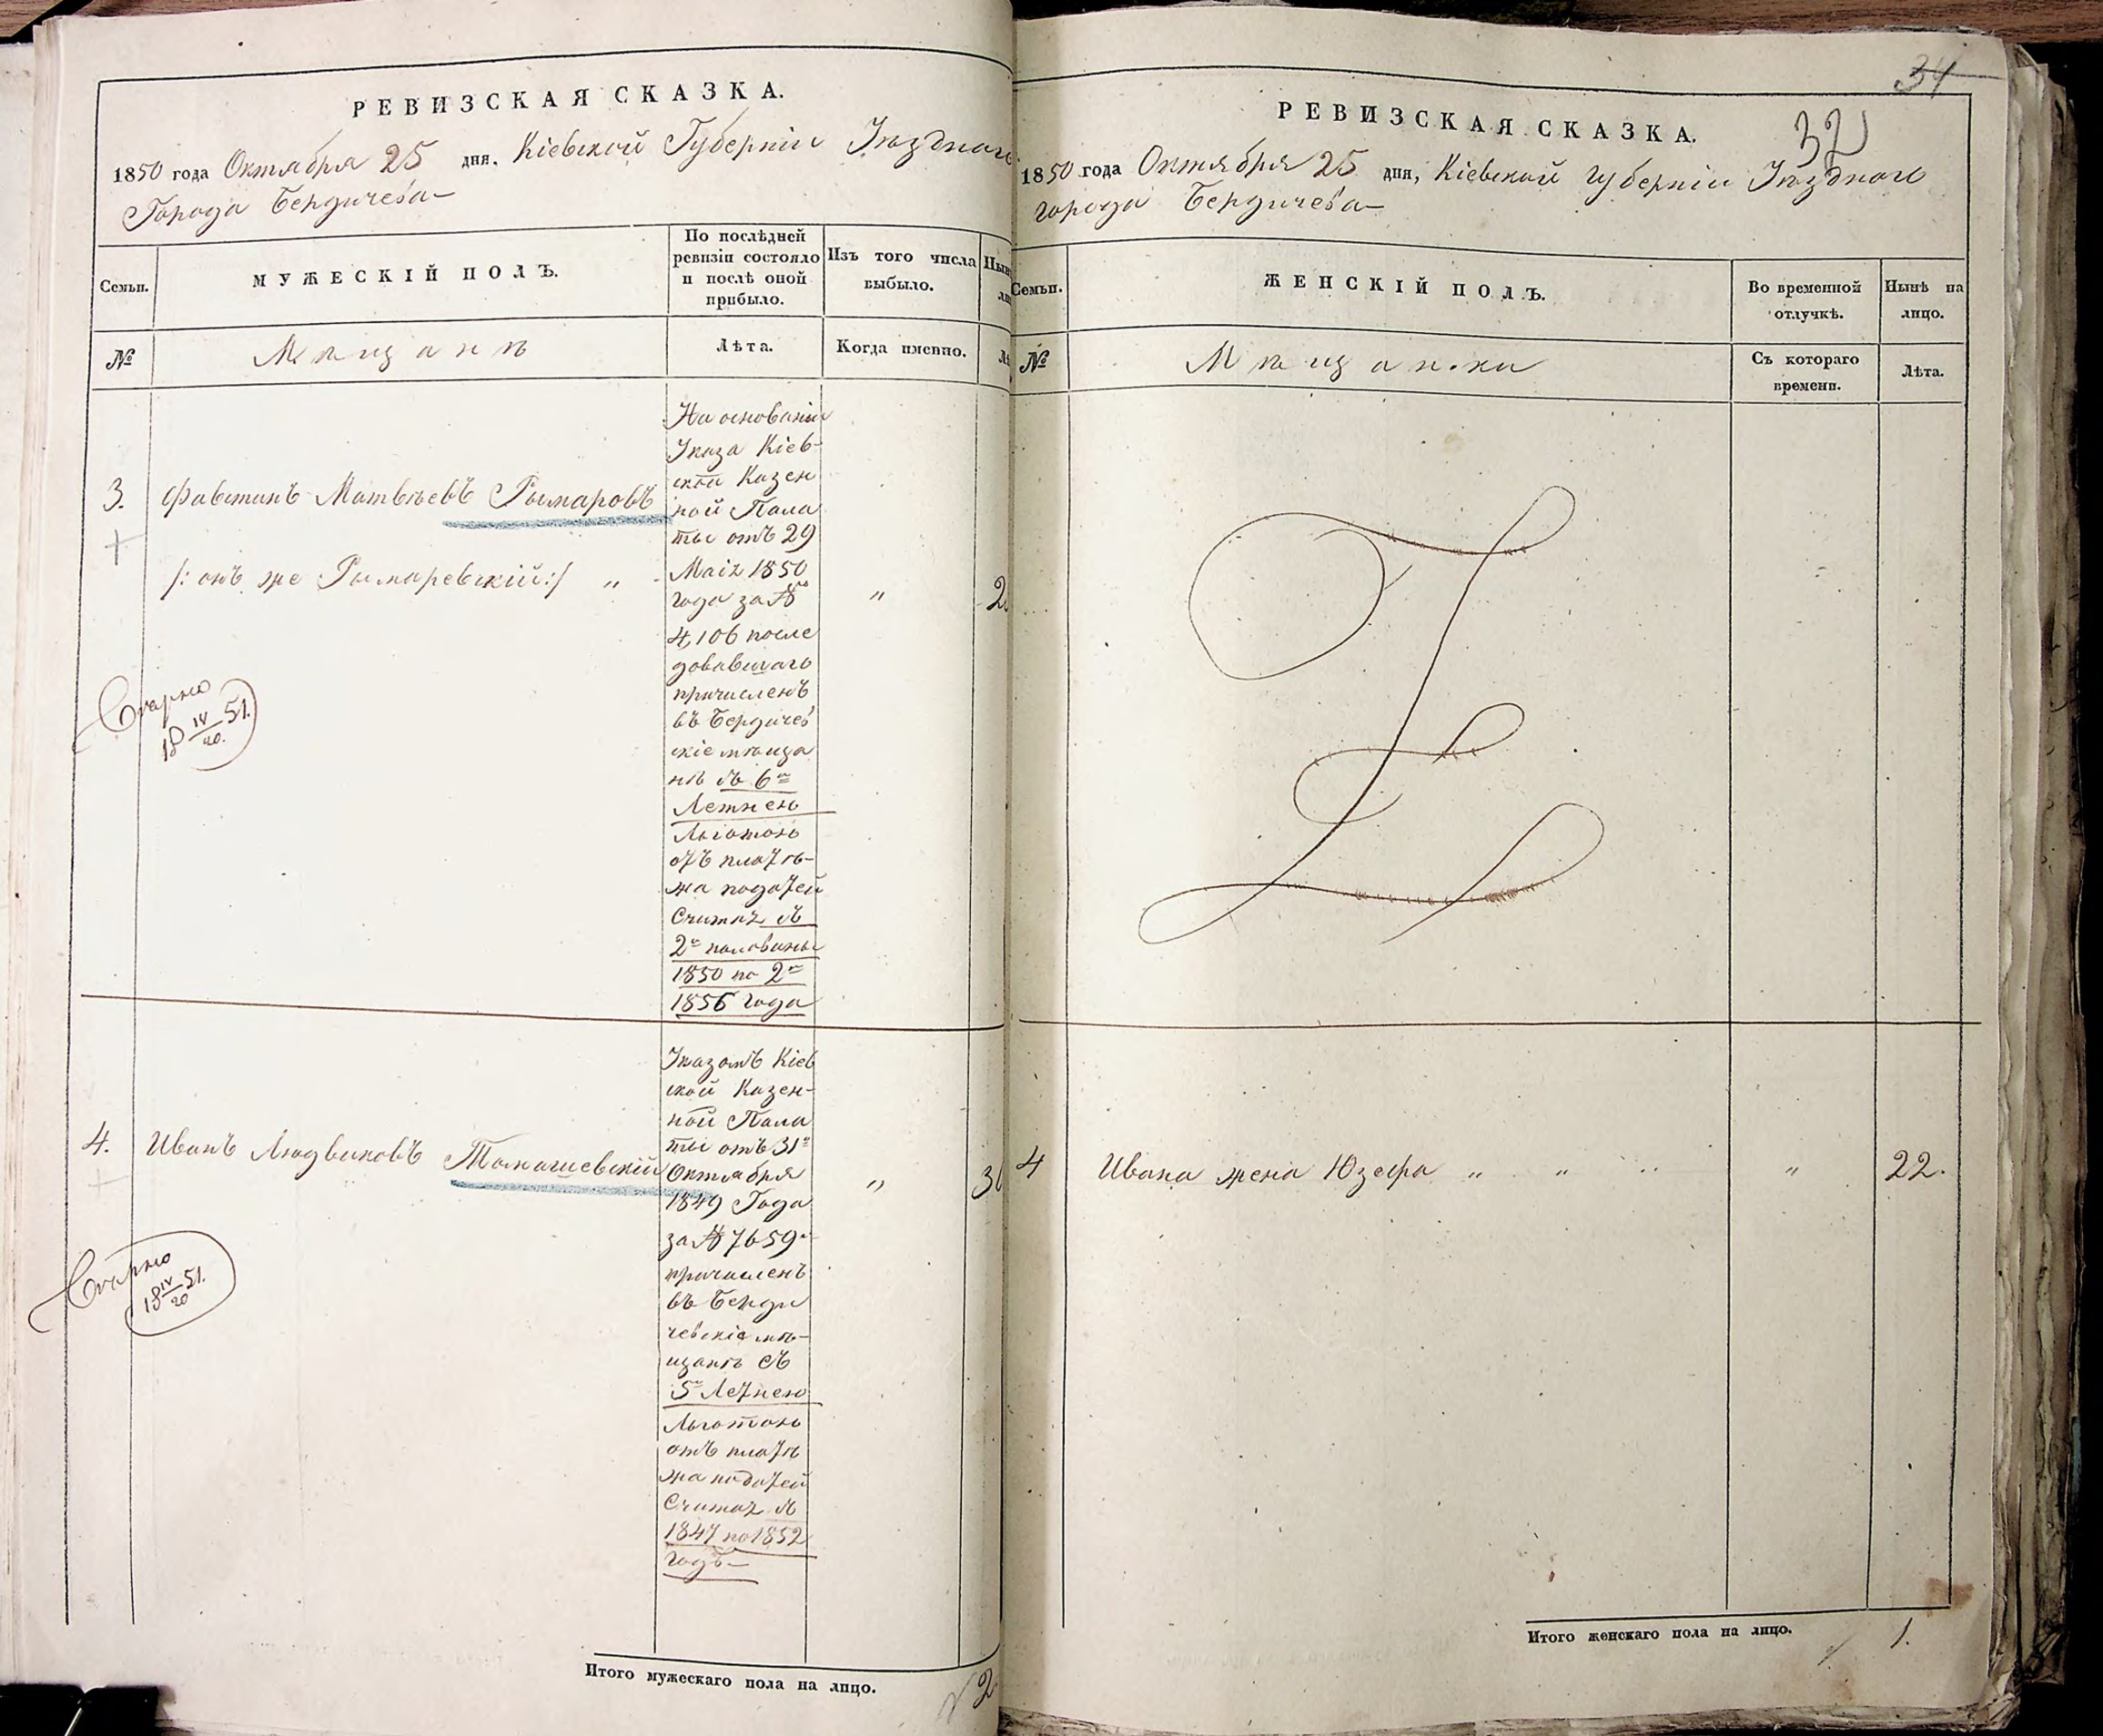 РЕВИЗСКАЯ СКАЗКА.
1850 года Октября 25 дня, Кіевской Губерніи Уѣзднаго
Города Бердичева
Семьи.
МУЖЕСКІЙ ПОЛЪ.
По послѣдней
ревизіи состояло
и послѣ оной
прибыло.
Изъ того числа
выбыло.
№
Мѣщанѣ
Лѣта.
Когда именно.
3. Фавстинъ Матвѣевъ Рымаровъ
/: онъ же Рымаревскій :/ „
На основаніи
Указа Кіев-
ской Казен
ной Пала
ты отъ 29
Маія 1850
года за №
4,106 после
довавшаго
причисленъ
въ Бердичев
скіе мѣща
нѣ съ 6ю
Летнею
Льготою
отъ плате-
жа податей
Считая съ
2й половины
1850 по 2ю
1856 года
„
18 IV/20 51.
4. Иванъ Людвиковъ Томашевскій
Указомъ Кіев
ской Казен-
ной Пала
ты отъ 31го
Октября
1849 Года
за № 7659
причисленъ
въ Берди
чевскіе мѣ-
щанѣ съ
5ю Летнею
Льготою
отъ плате
жа податей
Считая съ
1847 по 1852
годъ
„
18 IV/20 51.
Итого мужескаго пола на лицо.
2
34
32
РЕВИЗСКАЯ СКАЗКА.
1850 года Октября 25 дня, Кіевской Губерніи Уѣзднаго
города Бердичева
Семьи.
ЖЕНСКІЙ ПОЛЪ.
Во временной
отлучкѣ.
Нынѣ на
лицо.
№
Мѣщанки
Съ котораго
времени.
Лѣта.
4 Ивана жена Юзефа „ „ „ „ 22.
Итого женскаго пола на лицо. 1.